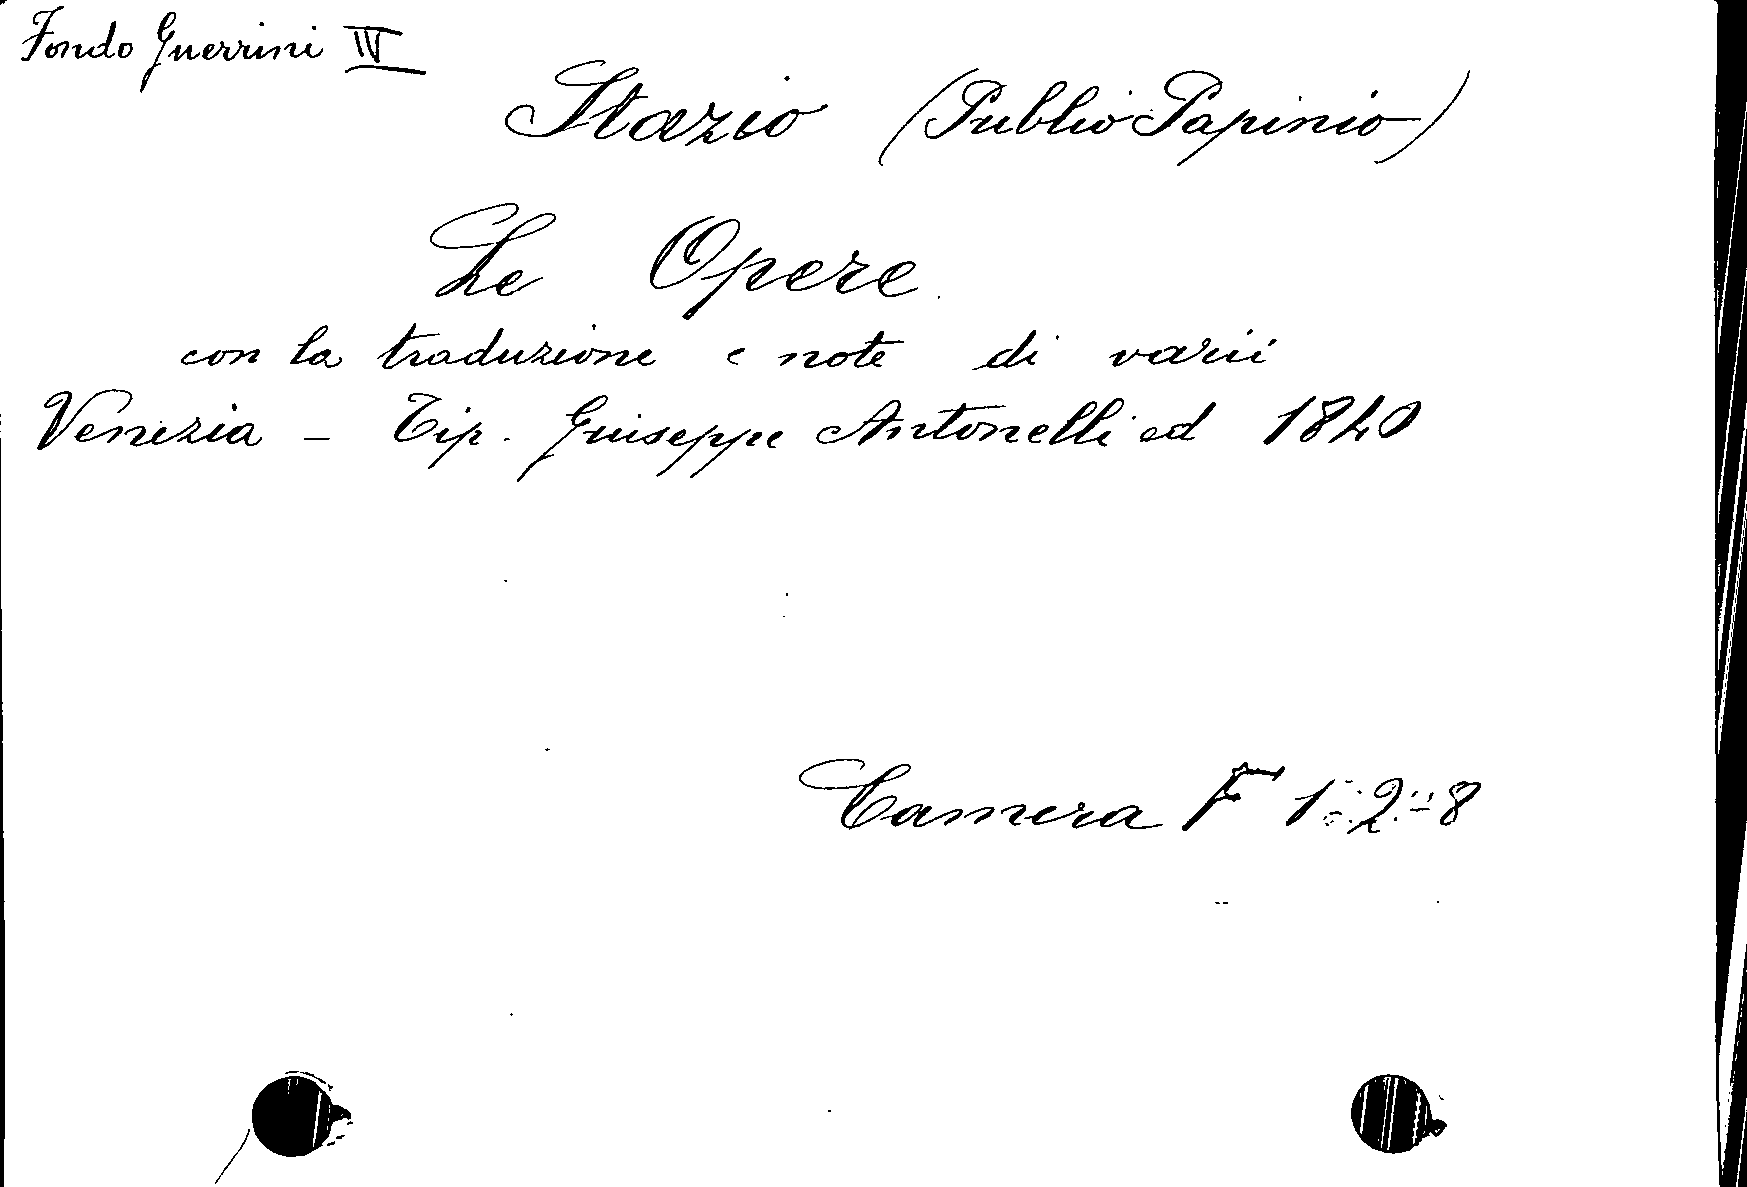 Fondo Guerrini IV
Stazio (Publio Papinio)
Le Opere
con la traduzione e note di varii
Venezia - Tip. Giuseppe Antonelli ed 1840
Camera F 1. 2. 8